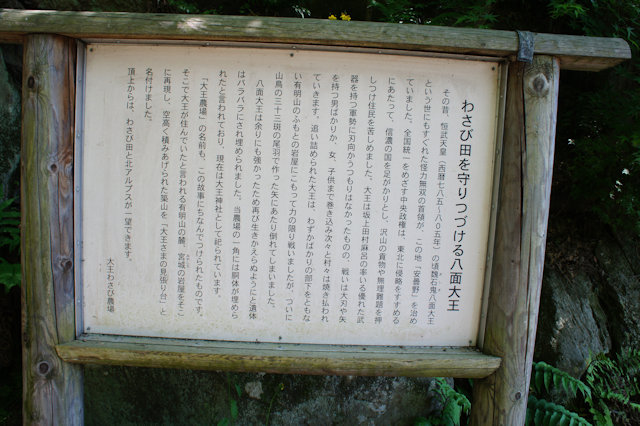 わさび田を守りつづける八面大王
その昔、恒武天皇(西暦七八五-八〇五年)の頃魏石鬼八面大王
という世にもすぐれた怪力無双の首領が、この地「安曇野」を治め
ていました。全国統一をめざす中央政権は、東北に侵略をすすめる
にあたって、信濃の国を足がかりとし、沢山の貢物や無理難題を押
しつけ住民を苦しめました。大王は坂上田村麻呂の率いる優れた武
器を持つ軍勢に刃向かうつもりはなかったものの、戦いは大刃や矢
を持つ男ばかりか、女、子供まで巻き込み次々と村々は焼き払われ
ていきます。追い詰められた大王は、わずかばかりの部下をともな
い有明山のふもとの岩屋にこもって力の限り戦いましたが、ついに
山鳥の三十三斑の尾羽で作った矢にあたり倒れてしまいました。
八面大王は余りにも強かったため再び生きかえらぬようにと遺体
はバラバラにされ埋められました。当農場の一角には胴体が埋めら
れたと言われており、現在は大王神社として祀られています。
「大王農場」の名前も、この故事にちなんでつけられたものです。
そこで大王が住んでいたと言われる有明山の麓、宮城の岩屋をそこ
に再現し、空高く積みあげられた築山を「大王さまの見張り台」と
名付けました。
頂上からは、わさび田と北アルプスが一望できます。
大王わさび農場